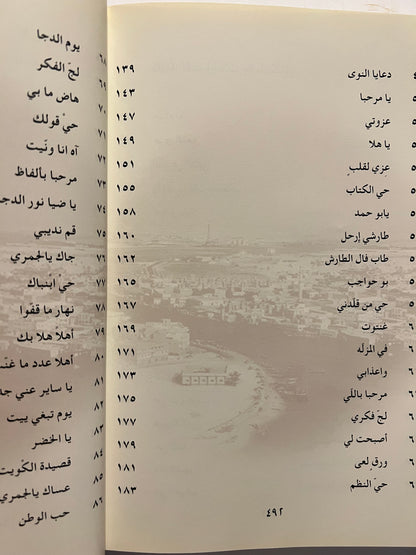 ٤ دعايا النوى ١٣٩
٥ يا مرحبا ١٤٣
٥ عزوتي ١٤٧
٥ يا هلا ١٤٩
٥ عزي لقلبٍ ١٥١
٥ حي الكتاب ١٥٥
٥ يابو حمد ١٥٨
٥ طارشي إرحل ١٦٠
٥ طاب فال الطارش ١٦٢
٥ بو حواجب ١٦٥
٥ حي من قلدني ١٦٧
٦ غنتوت ١٦٩
٦ في المزله ١٧١
٦ واعذابي ١٧٣
٦ مرحبا باللّي ١٧٥
٦ لجّ فكري ١٧٧
٦ أصبحت لي ١٧٩
٦ ورقٍ لعى ١٨١
٦ حيّ النظم ١٨٣
٤٩٢
٦٨ يوم الدجا
٦٩ لجّ الفكر
٧٠ هاض ما بي
٧١ حيّ قولك
٧٢ آه انا ونّيت
٧٣ مرحبا بألفاظ
٧٤ يا ضيا نور الدجا
٧٥ قم نديبي
٧٦ جاك يالجمري
٧٧ حيّ ابنباك
٧٨ نهار ما قفّوا
٧٩ أهلاً هلا بك
٨٠ أهلا عدد ما
٨١ يا ساير عني
٨٢ يوم تبغي بيت
٨٣ يا الخضر
٨٤ قصيدة الكويت
٨٥ عساك يالجمري
٨٦ حب الوطن